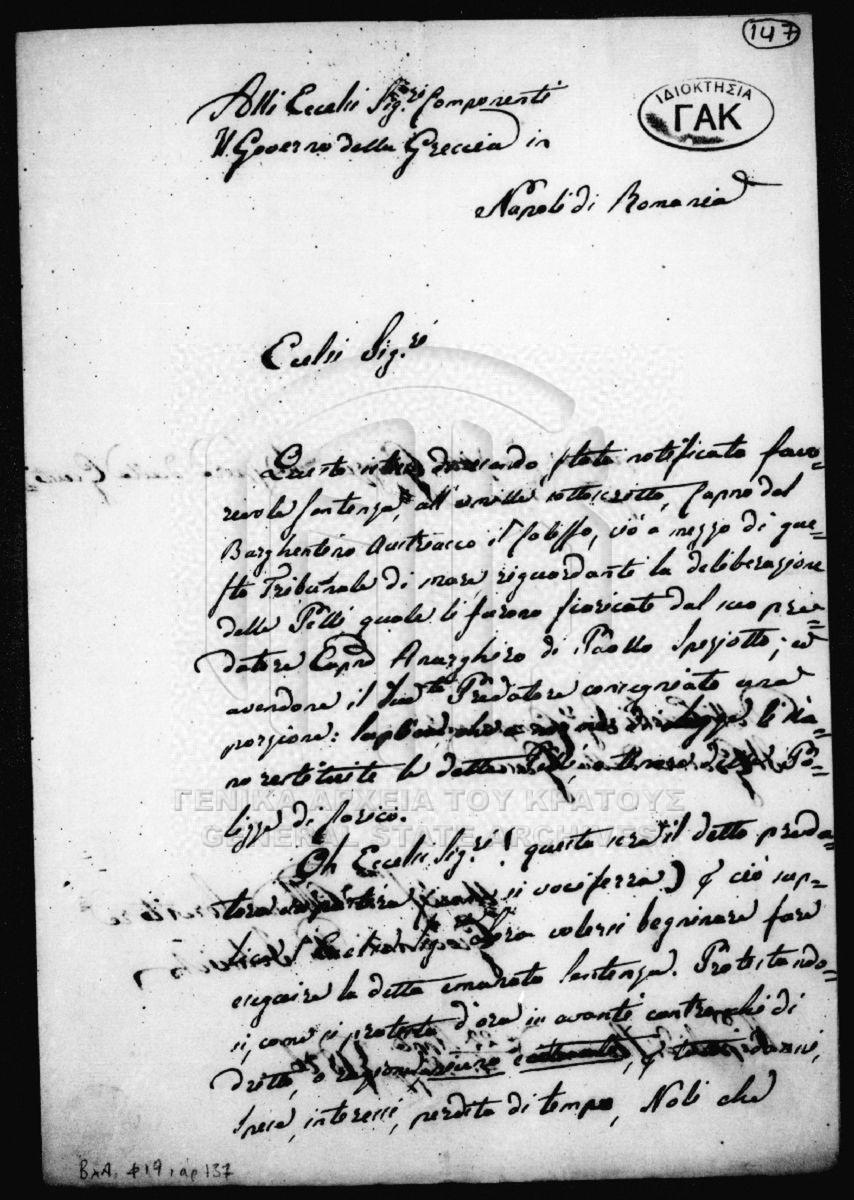 147
ΙΔΙΟΚΤΗΣΙΑ
ΓΑΚ
Alli Eccelsi Sig.ri Componenti
Il Governo della Greccia in
Napoli di Romania
Ecelsi Sig.ri
stata notificata favo-
revole sentenza, all'umille sottoscritto, Capno dal
Barghentino Austriacco il Calisso, ciò a mezzo di que-
sto Tribunale di mare, riguardante la deliberazione
delle Pelli quale li furono scaricate dal suo pre-
datore Capno Anarghiro di Paollo Speziotto; ed
avendone il Predatore consegniato una
porzione: li sia-
no restituite le dette Pelli, Po-
lizza di carico.
Oh Eccelsi Sig.ri! questa sera il detto preda-
tore partirà si vociferra) & ciò sup-
lica volersi begninare fare
eseguire la detta emanata sentenza. Protestando-
si, come si protesta d'ora in avanti contro chi di
dritto, danni,
spese, interessi, perdita di tempo, Noli che
ΓΕΝΙΚΑ ΑΡΧΕΙΑ ΤΟΥ ΚΡΑΤΟΥΣ
GENERAL STATE ARCHIVES
ΒχΑ. Φ19, αρ 137